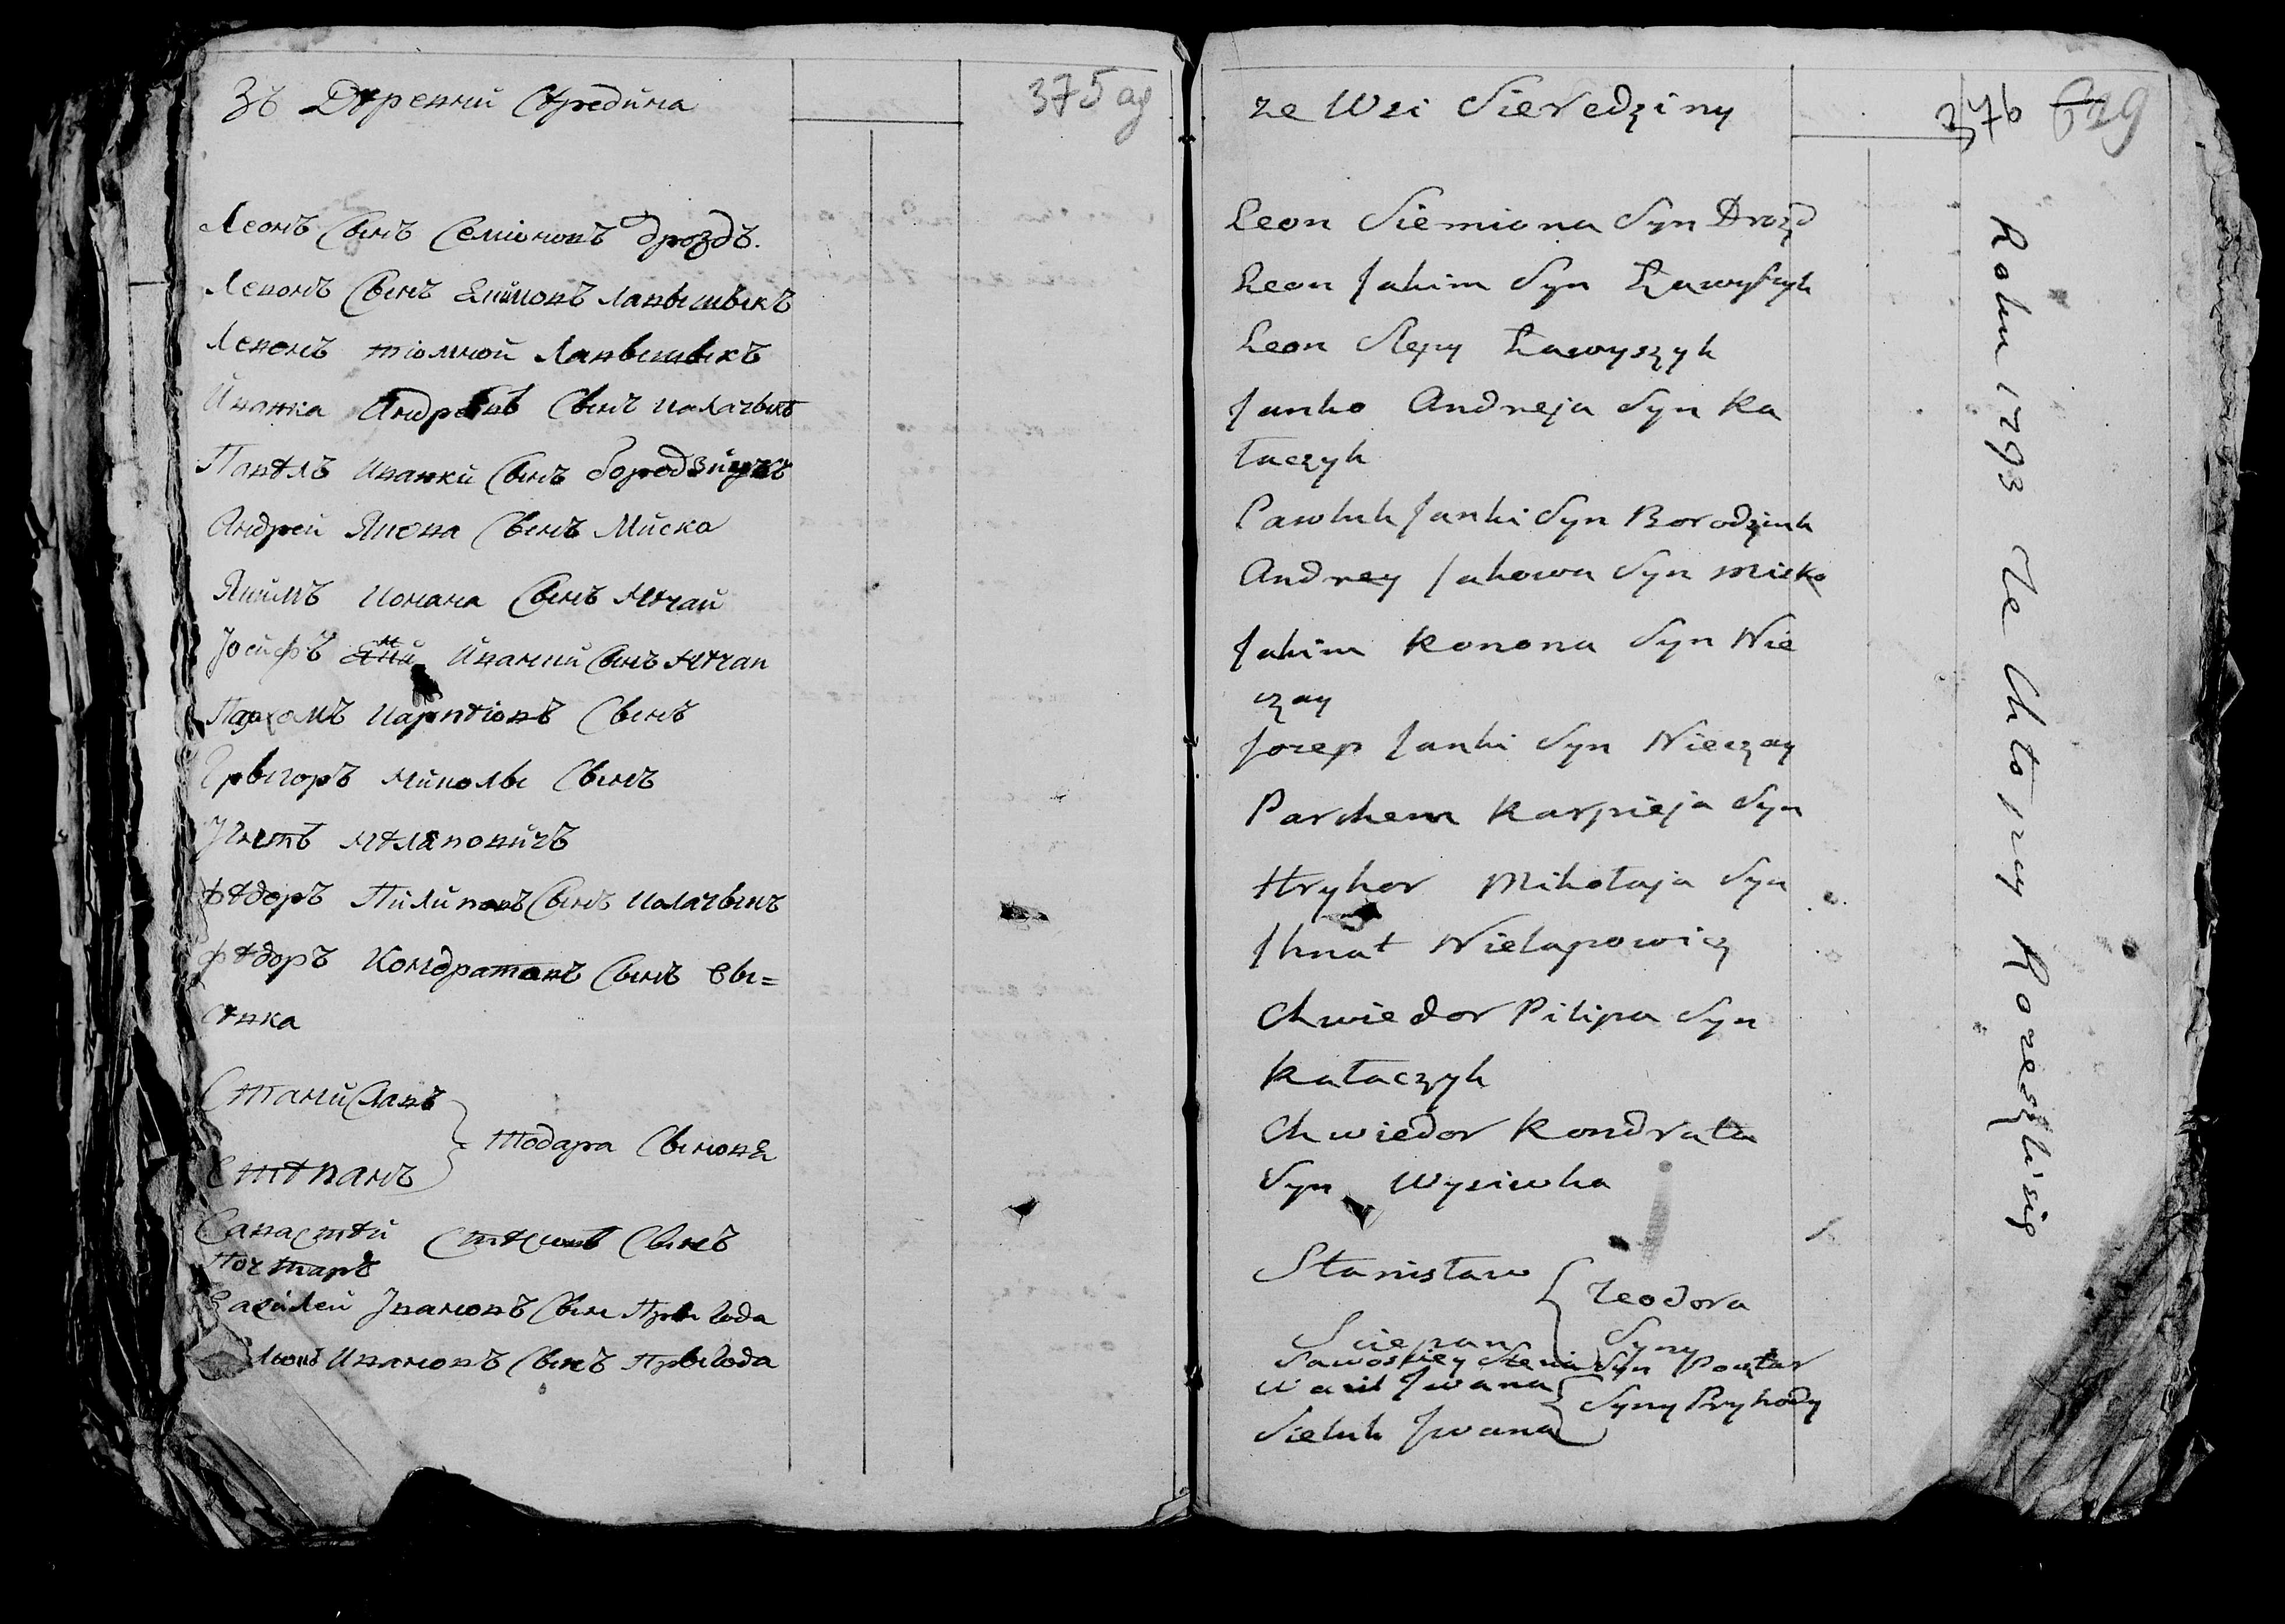 Зъ Деревни Середина
375 ag
Леонъ Сынъ Семіоновъ Дроздъ.
Левонъ Сынъ Якимовъ Лавышыкъ
Левонъ тіомной Лавышыкъ
Иванка Андреевъ Сынъ Калачыкъ
Павелъ Иванки Сынъ Бородзиукъ
Андрей Якова Сынъ Миско
Якимъ Конана Сынъ Нечай
Іосифъ Иванки Сынъ Нечай
Пархомъ Карпѣіовъ Сынъ
Грыгоръ Миколы Сынъ
Игнатъ Нелаповичъ
Фѣдоръ Пилиповъ Сынъ Калачыкъ
Фѣдоръ Кондратовъ Сынъ Вы=
сѣвка
Станиславъ
Тодара Сыновя
Стѣпанъ
Савастѣй Сынъ
Почтаръ
Василей Ивановъ Сын Прыгода
Ивановъ Сынъ Прыгода
ze Wsi Sieredziny
376 629
Leon Siemiona Syn Drozd
Leon Jakim Syn Ławyszyk
Leon Slepy Ławyszyk
Janko Andreja Syn Ka
łaczyk
Pawluk Janki Syn Borodziuk
Andrey Jakowa Syn Misko
Jakim Konona Syn Nie
czay
Jozep Janki Syn Nieczay
Parchem Karpieja Syn
Hryhor Mikołaja Syn
Jhnat Nielapowicz
Chwiedor Pilipa Syn
Kałaczyk
Chwiedor Kondrata
Syn Wysiwka
Stanisław
Teodora
Sciepan Syny
Sawosciey Syn Pocztar
Wasil Jwana
Syny Pryhody
Sieluk Jwana
Roku 1793 Ze Chtorzy Rozeszlisię